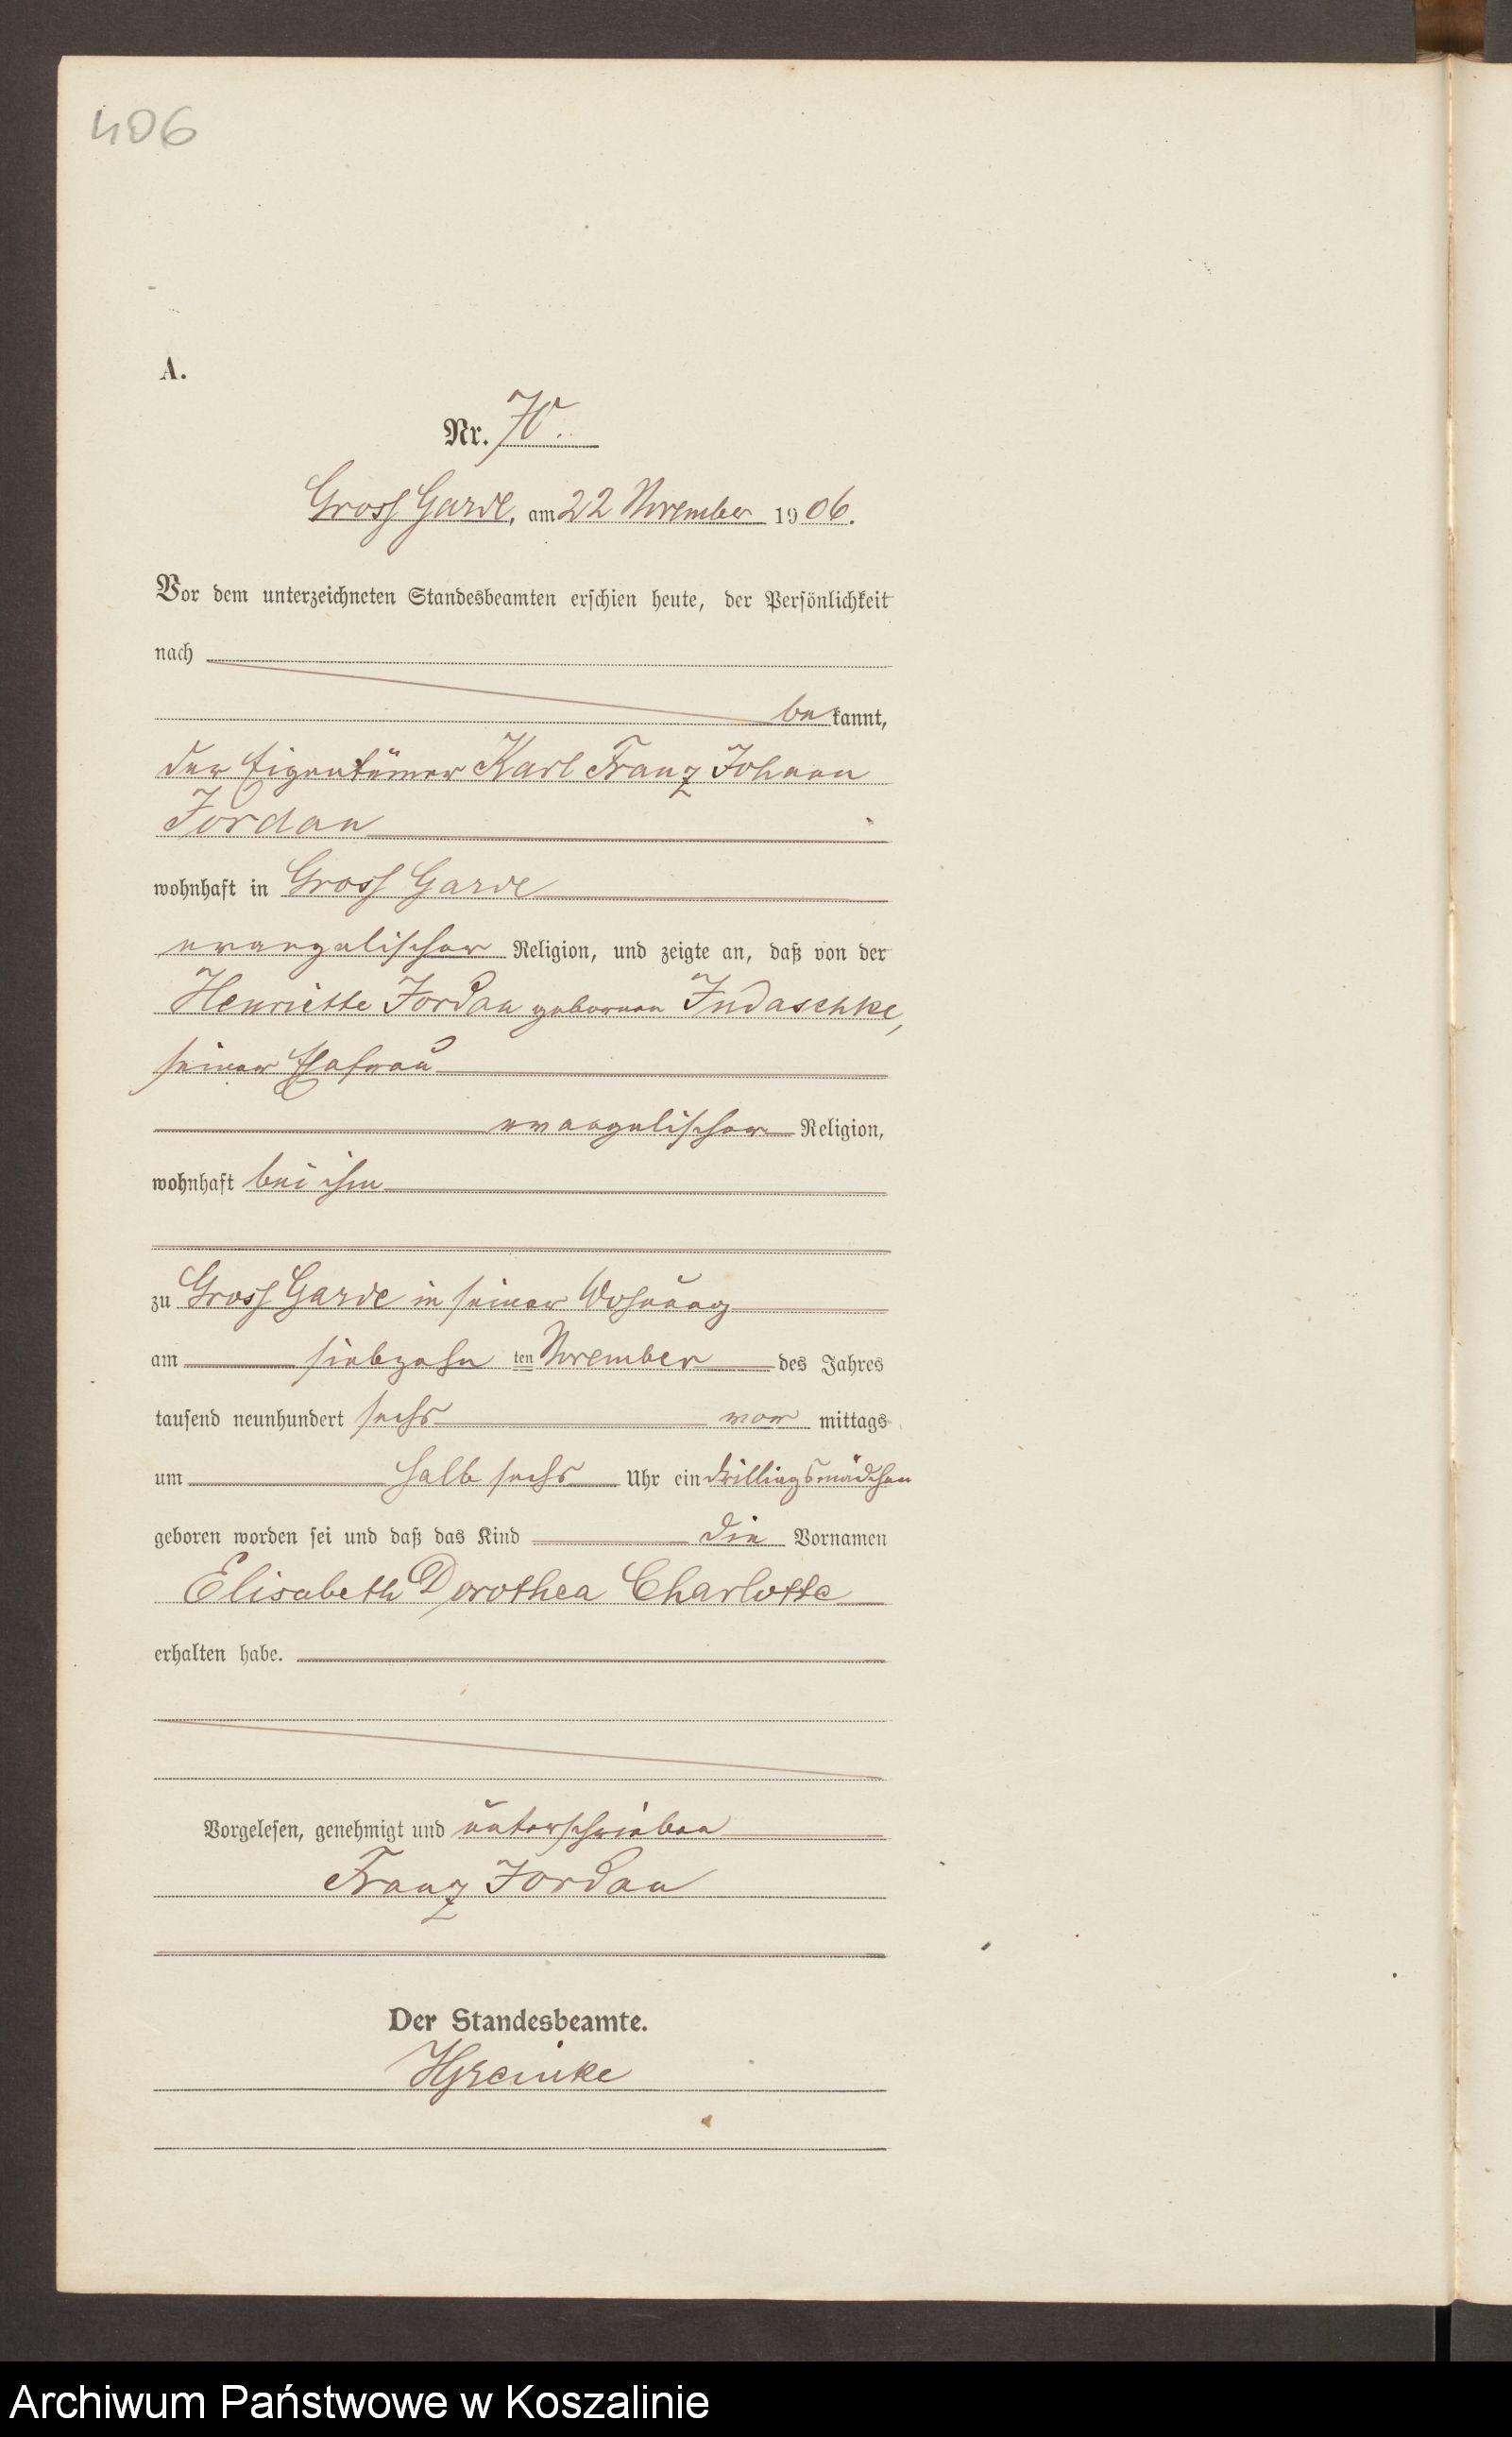 406
A.
Nr. 70.
Gross Garde, am 22 November 1906.
Vor dem unterzeichneten Standesbeamten erschien heute, der Persönlichkeit
nach
bekannt,
der Eigentümer Karl Franz Johann
Jordan
wohnhaft in Gross Garde
evangelischer Religion, und zeigte an, daß von der
Henriette Jordan geborenen Judaschke,
seiner Ehefrau
evangelischer Religion,
wohnhaft bei ihm
zu Gross Garde in seiner Wohnung
am siebzehn ten November des Jahres
tausend neunhundert sechs vor mittags
um halb sechs Uhr ein Drillingsmädchen
geboren worden sei und daß das Kind die Vornamen
Elisabeth Dorothea Charlotte
erhalten habe.
Vorgelesen, genehmigt und unterschrieben
Franz Jordan
Der Standesbeamte.
Archiwum Państwowe w Koszalinie